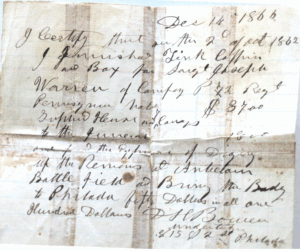 Dec 14 1866
I Certify that on the 2d of oct 1862
I furnished Zink Coffin
and Box for Sergt Joseph
Warren of Company 72 Regt
Pennsylvn Vols $ 37.00
to the funeral
and the Expenses of Diging
up the Remains at Antietam
Battle field and Bring the Body
to Philada fifty Dollars in all one
Hundred Dollars D H Bowen
undertaker
Philada